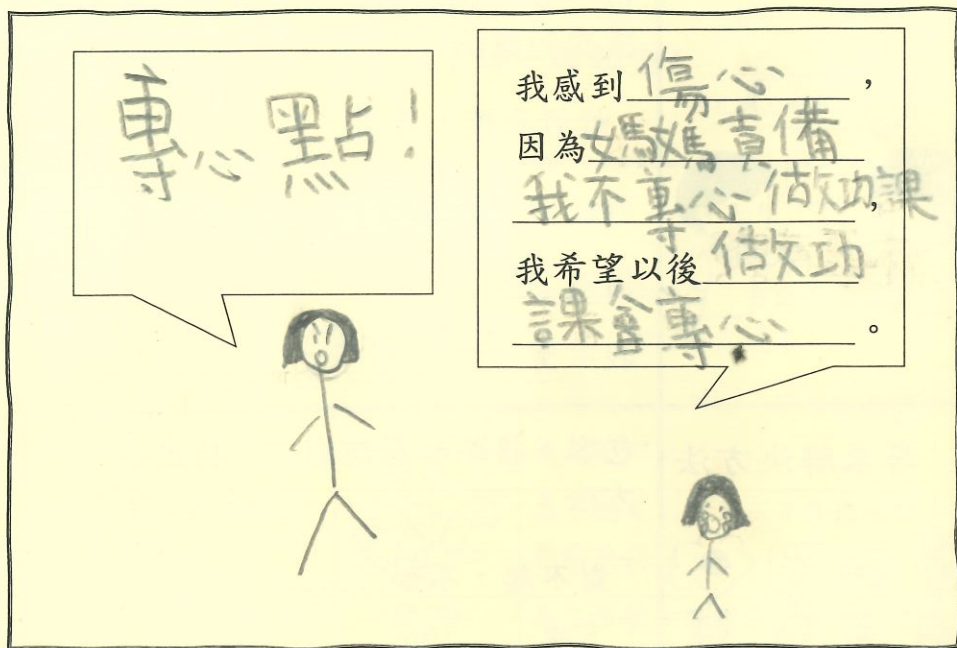 專心點！
我感到傷心，
因為媽媽責備
我不專心做功課，
我希望以後做功
課會專心。